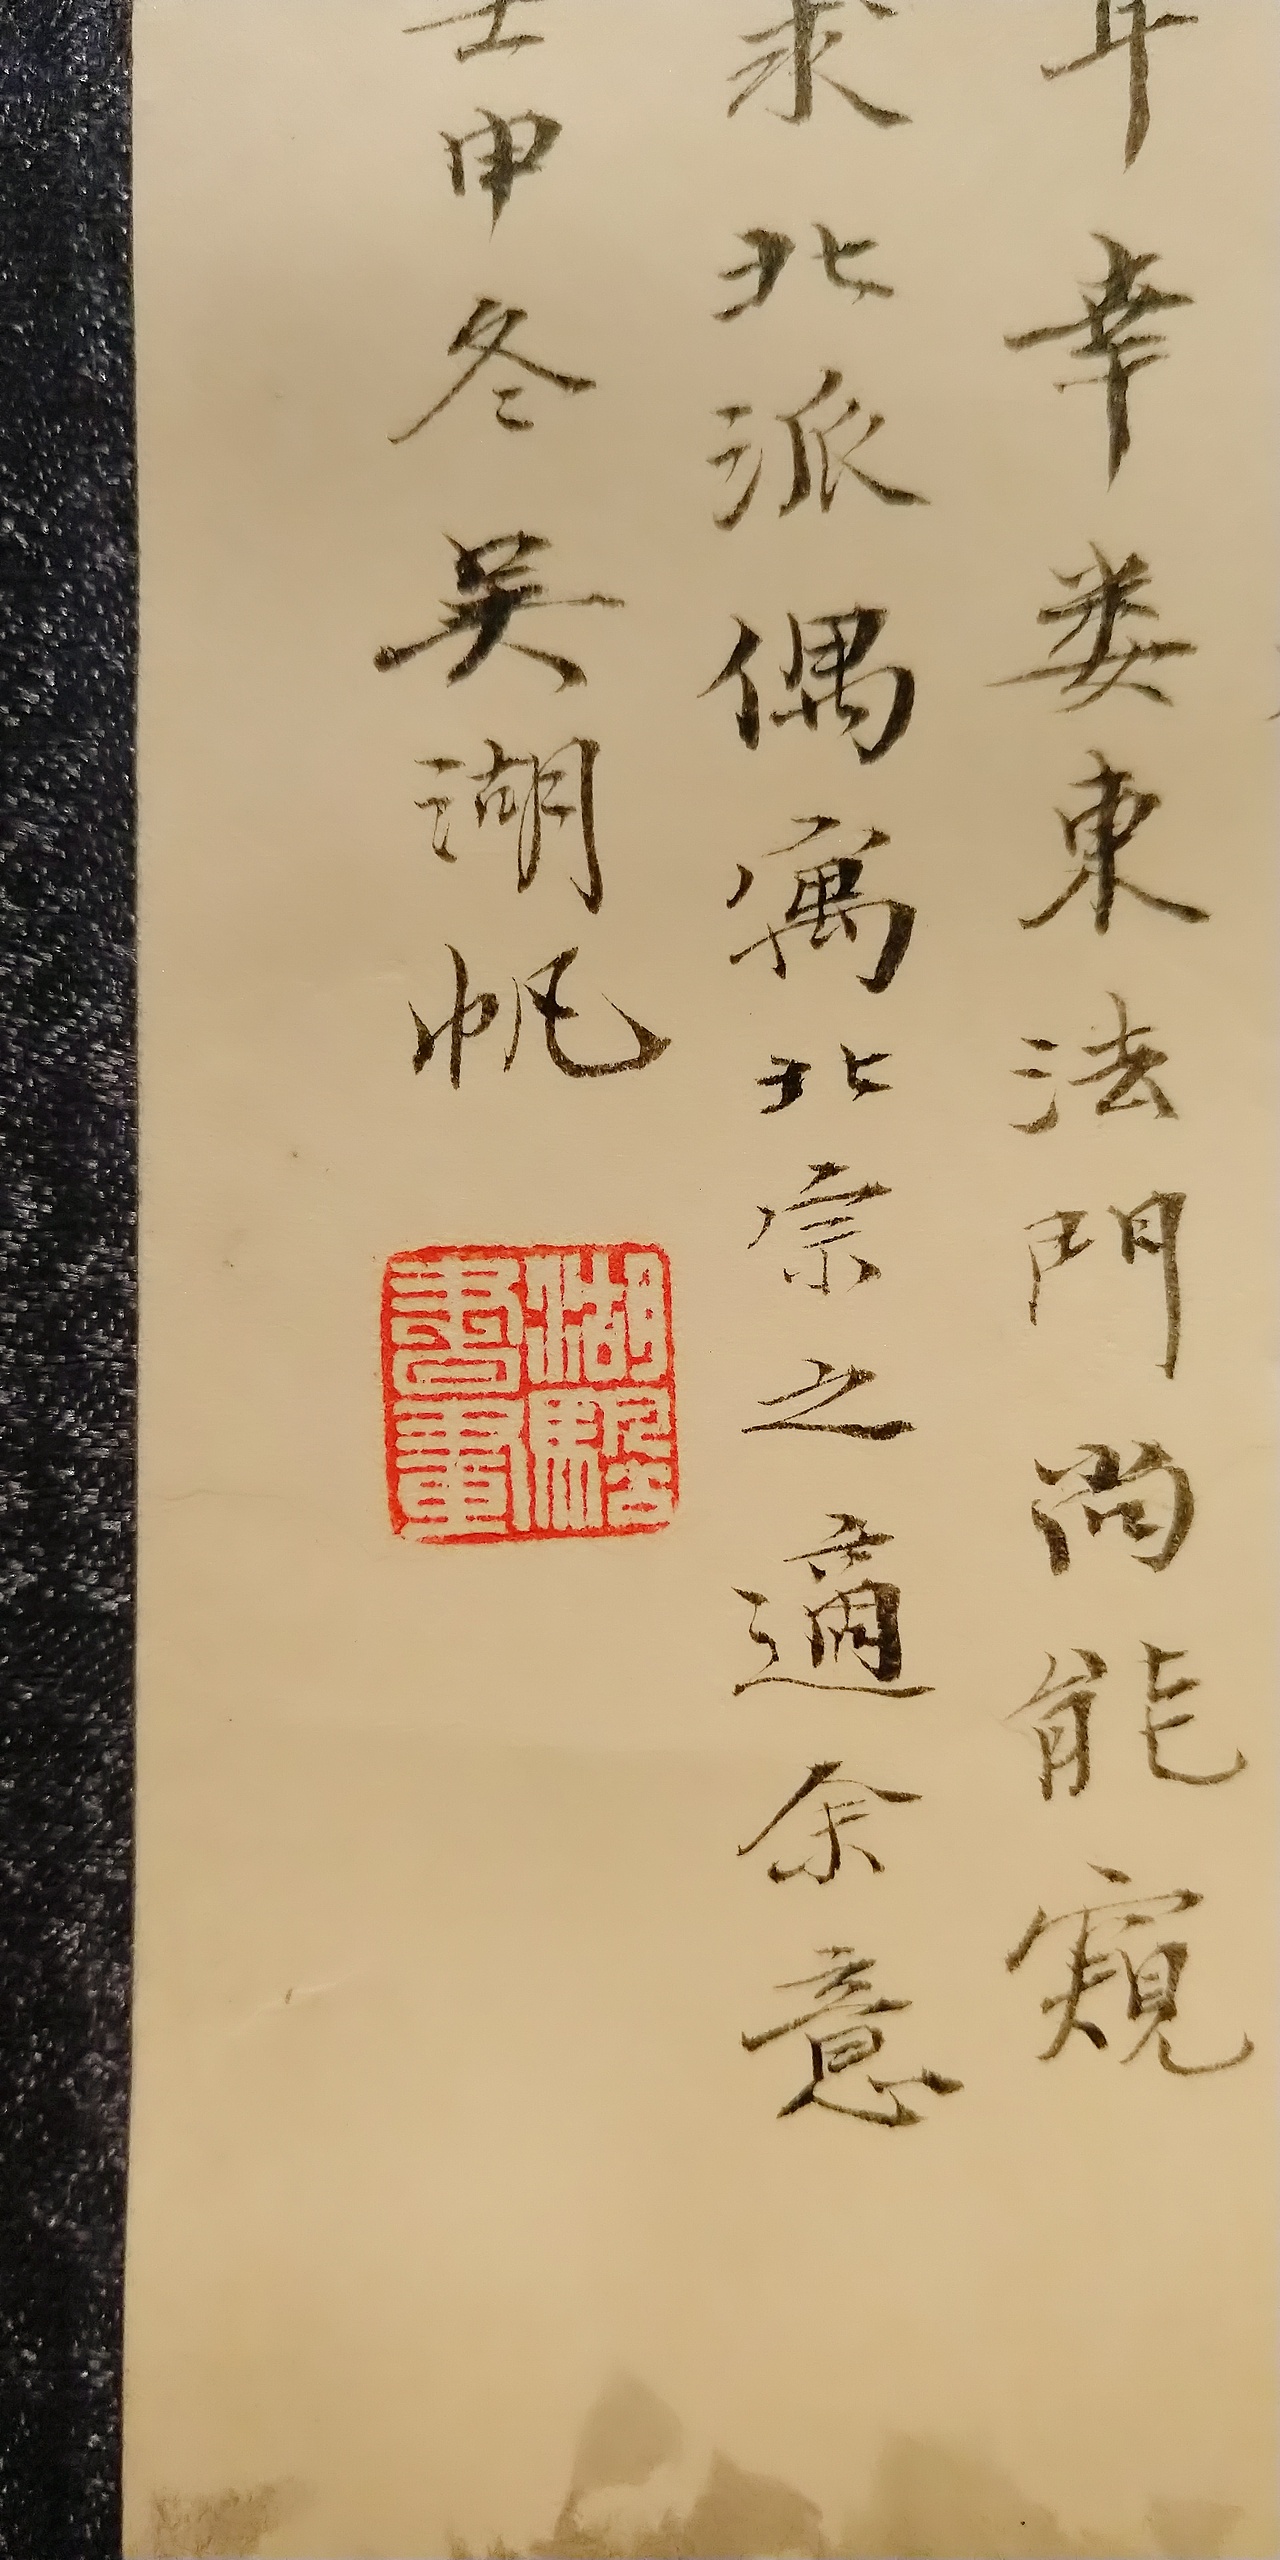 幸婁東法門尚能窺
求北派偶寓北宗之適余意
壬申冬吳湖帆
湖帆書畫